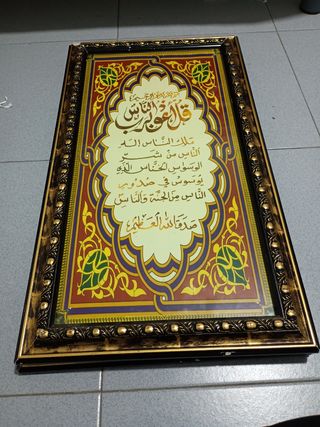 بسم الله الرحمن الرحيم
قل أعوذ برب الناس
ملك الناس اله
الناس من شر
الوسواس الخناس الذي
يوسوس في صدور
الناس من الجنة والناس
صدق الله العظيم